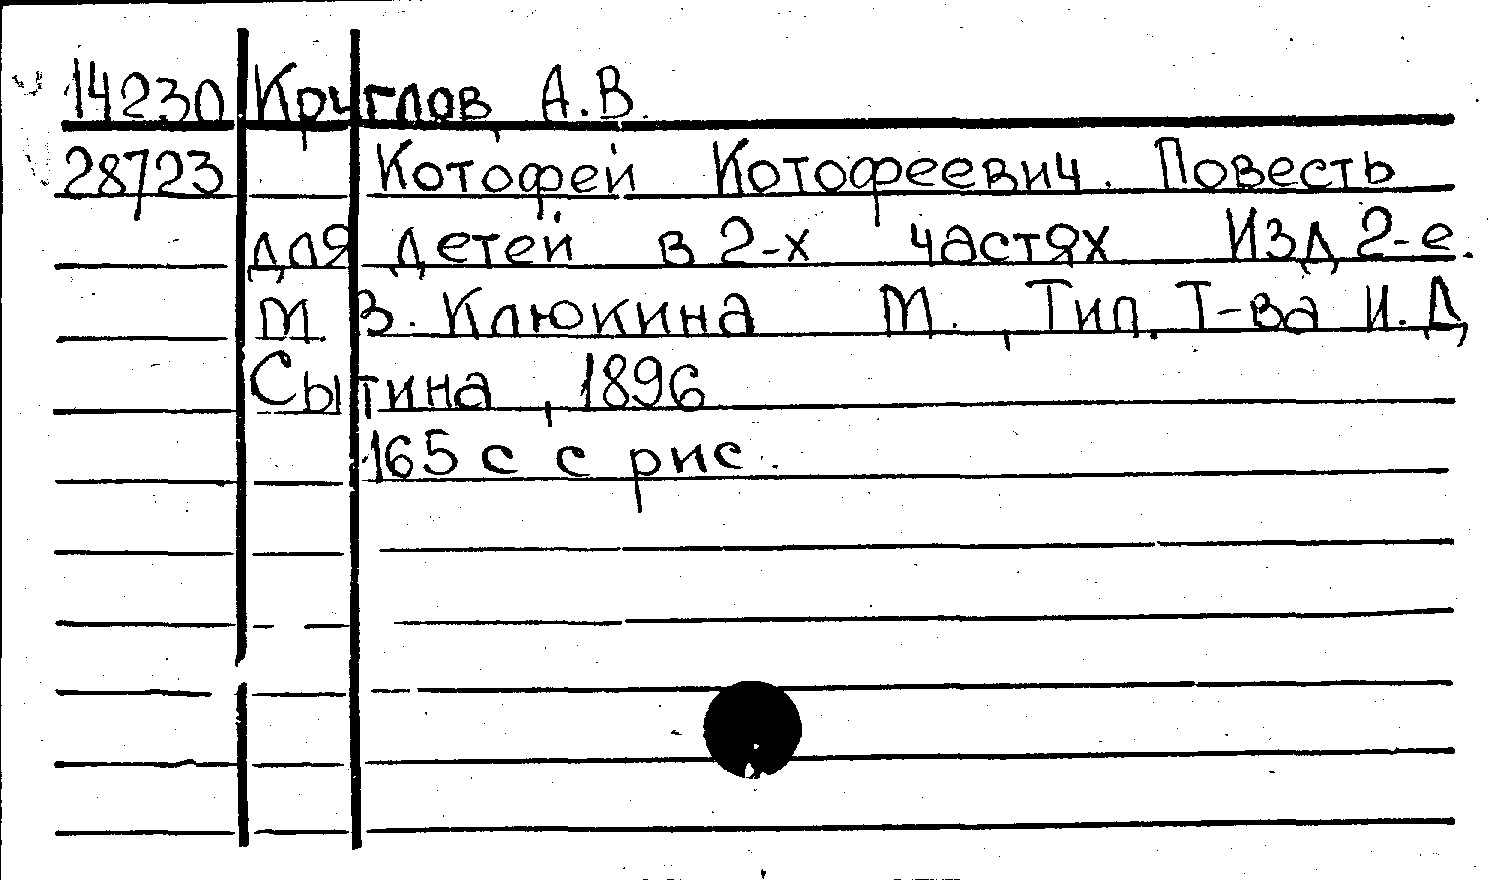 14230 Круглов, А.В.
28723 Котофей Котофеевич. Повесть
для детей в 2-х частях Изд 2-е.
М. В. Клюкина М., Тип. Т-ва И. Д,
Сытина, 1896
165 с с рис.